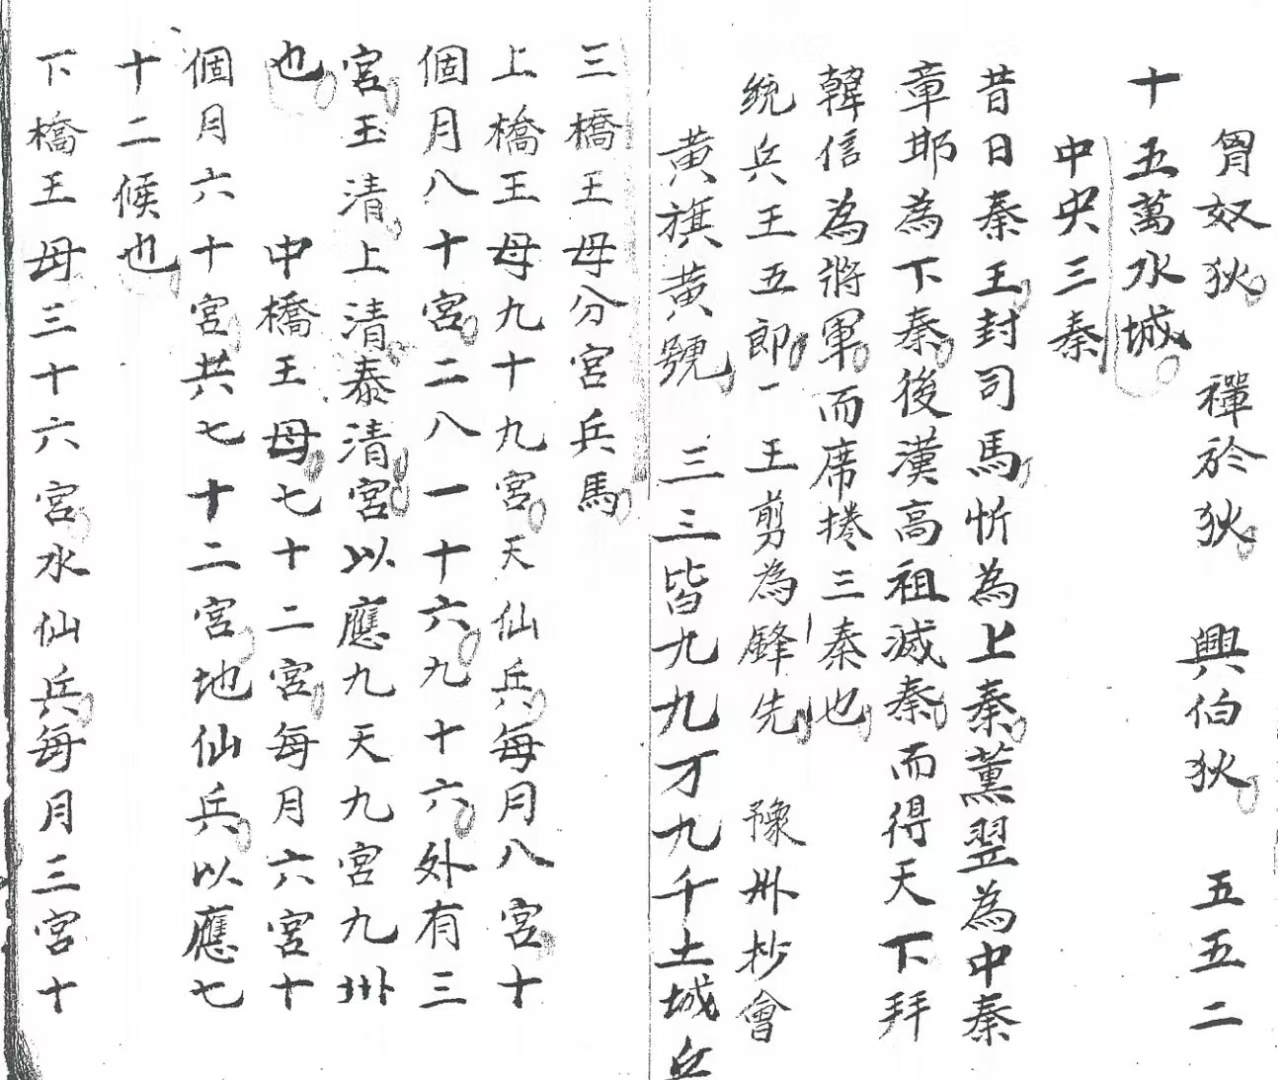 胷奴狄 襌於狄 興伯狄 五五二
十五萬水城
中央三秦
昔日秦王封司馬忻為上秦薰翌為中秦
章耶為下秦後漢高祖滅秦而得天下拜
韓信為將軍而席捲三秦也
統兵王五郎一王剪為鋒先 豫州抄會
黃旗黃號 三三皆九九才九千土城兵
三橋王母分宮兵馬
上橋王母九十九宮天仙兵每月八宮十
個月八十宮二八一十六九十六外有三
宮玉清上清泰清宮以應九天九宮九州
也 中橋王母七十二宮每月六宮十
個月六十宮共七十二宮地仙兵以應七
十二候也
下橋王母三十六宮水仙兵每月三宮十